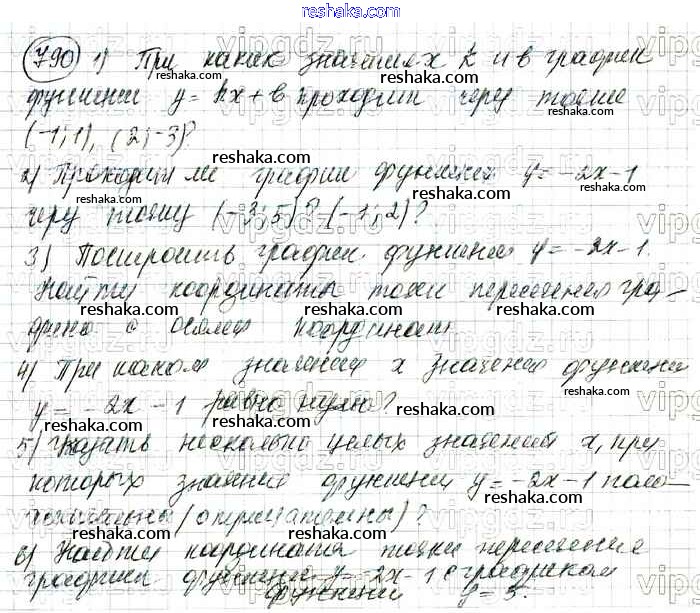 reshaka.com
790 1) При каких значениях k и b график
функции y = kx + b проходит через точки
(-1; 1), (2; -3)?
2) Проходит ли график функции y = -2x - 1
через точку (-3; 5)? (-1; 2)?
3) Построить график функции y = -2x - 1.
Найти координаты точки пересечения гра-
фика с осями координат.
4) При каком значении x значение функции
y = -2x - 1 равно нулю?
5) Указать несколько целых значений x, при
которых значение функции y = -2x - 1 поло-
жительны (отрицательны)?
6) Найти координаты точки пересечения
графики функции y = -2x - 1 с графиком
функции y = 5.